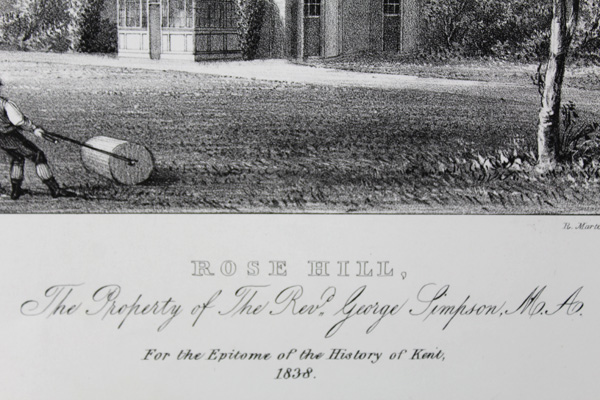 R. Mart
ROSE HILL,
The Property of The Revd. George Simpson, M.A.
For the Epitome of the History of Kent,
1838.